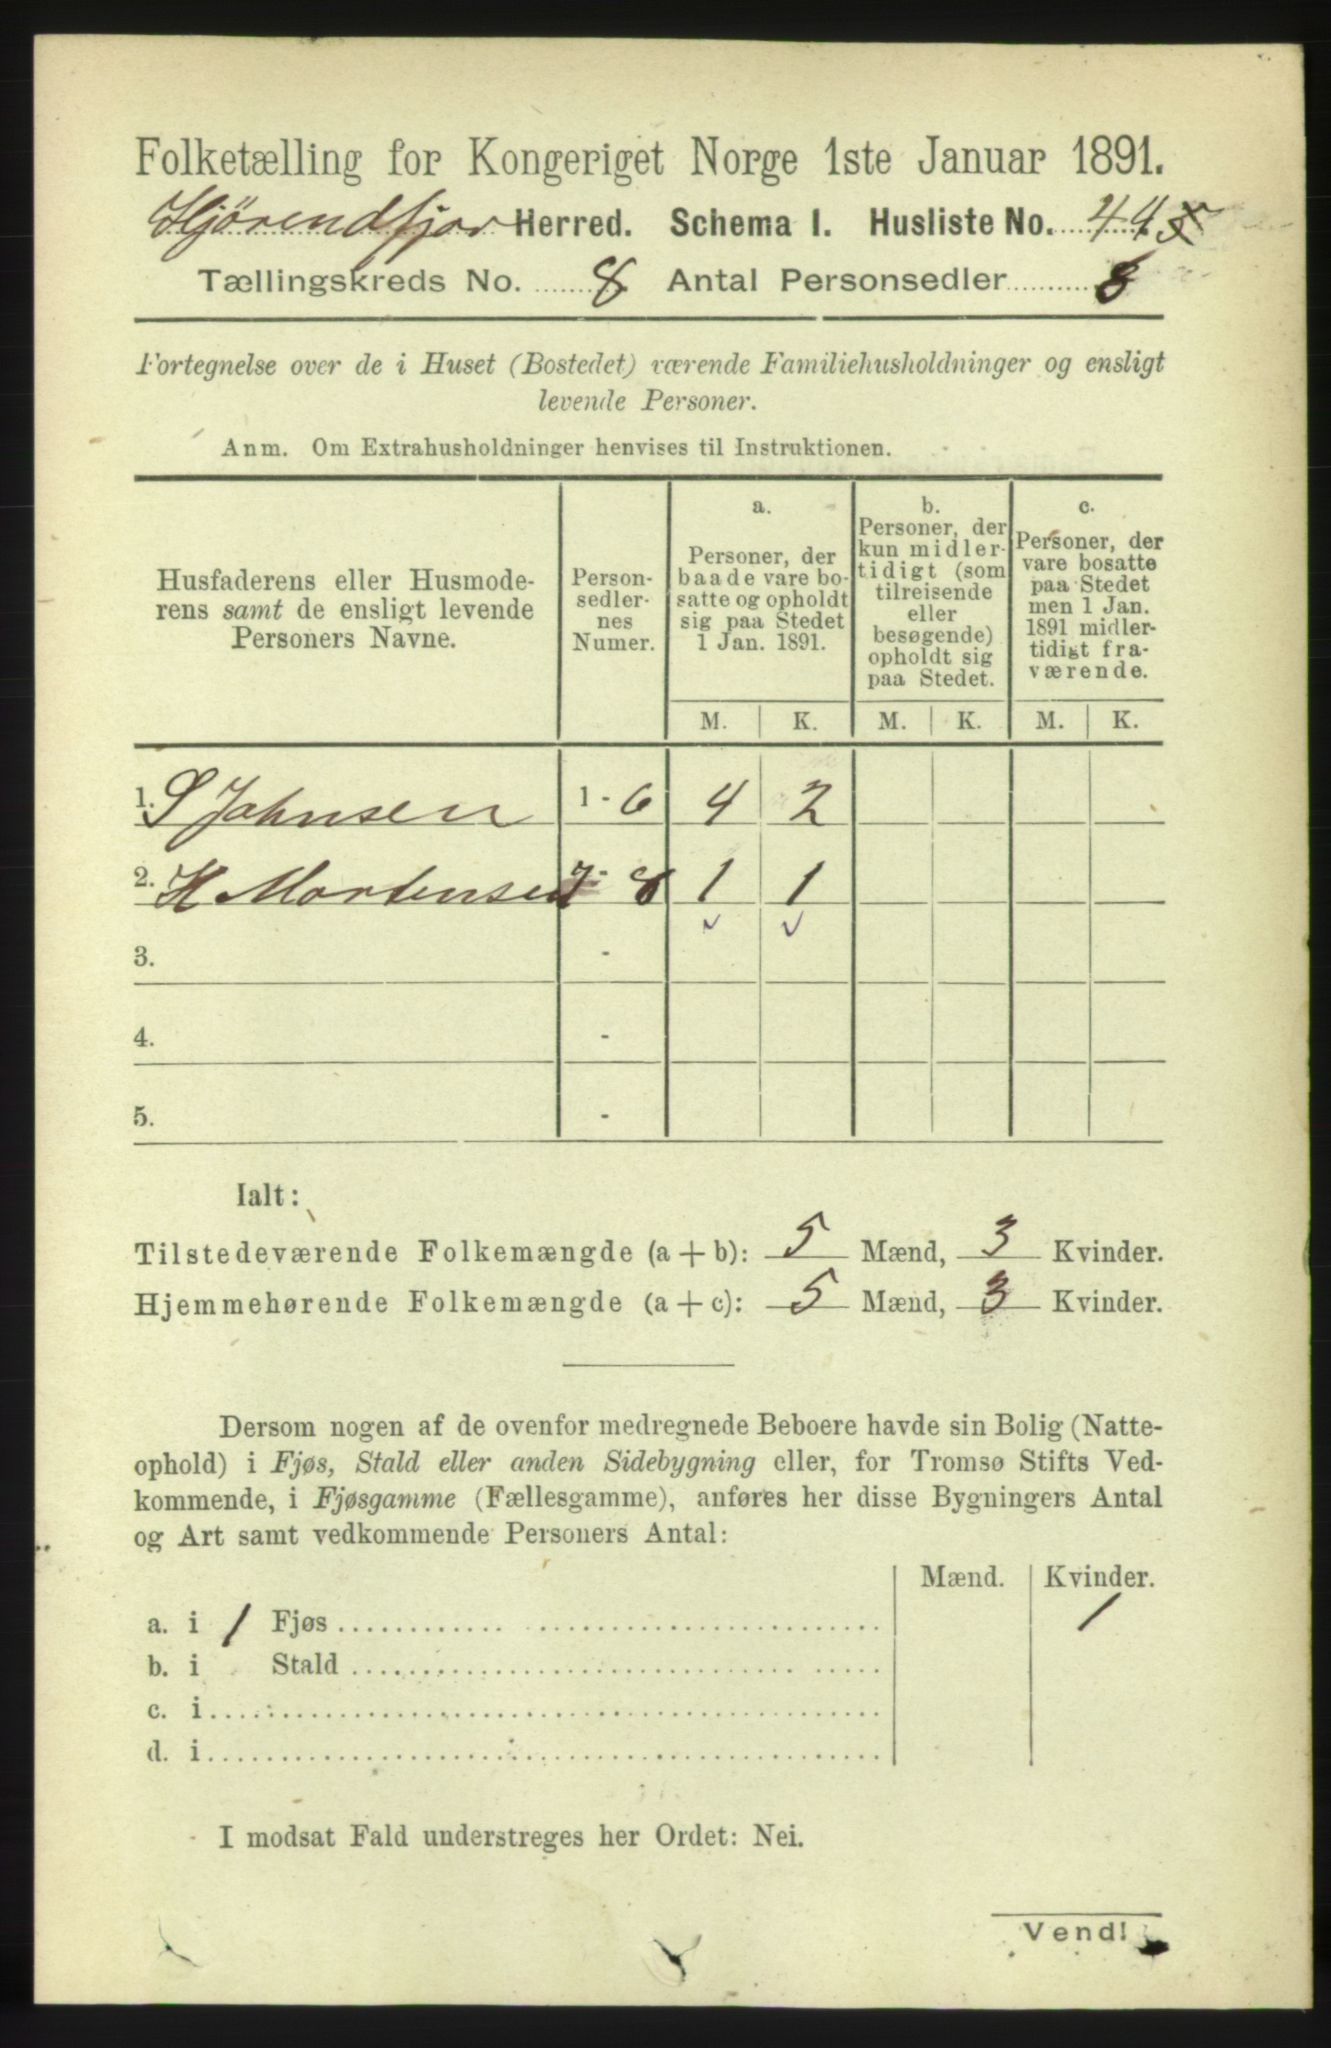 Folketælling for Kongeriget Norge 1ste Januar 1891.
Hjørendfjor Herred. Schema I. Husliste No. 44
Tællingskreds No. 8 Antal Personsedler 8
Fortegnelse over de i Huset (Bostedet) værende Familiehusholdninger og ensligt
levende Personer.
Anm. Om Extrahusholdninger henvises til Instruktionen.
Husfaderens eller Husmode-
rens samt de ensligt levende
Personers Navne.
Person-
sedler-
nes
Numer.
a.
Personer, der
baade vare bo-
satte og opholdt
sig paa Stedet
1 Jan. 1891.
b.
Personer, der
kun midler-
tidigt (som
tilreisende
eller
besøgende)
opholdt sig
paa Stedet.
c.
Personer, der
vare bosatte
paa Stedet
men 1 Jan.
1891 midler-
tidigt fra-
værende.
M. K. M. K. M. K.
1. S Johnsen 1 - 6 4 2
2. K Mortensen 7 - 8 1 1
3. -
4. -
5. -
Ialt:
Tilstedeværende Folkemængde (a + b): 5 Mænd, 3 Kvinder.
Hjemmehørende Folkemængde (a + c): 5 Mænd, 3 Kvinder.
Dersom nogen af de ovenfor medregnede Beboere havde sin Bolig (Natte-
ophold) i Fjøs, Stald eller anden Sidebygning eller, for Tromsø Stifts Ved-
kommende, i Fjøsgamme (Fællesgamme), anføres her disse Bygningers Antal
og Art samt vedkommende Personers Antal:
Mænd. Kvinder.
a. i 1 Fjøs 1
b. i Stald
c. i
d. i
I modsat Fald understreges her Ordet: Nei.
Vend!